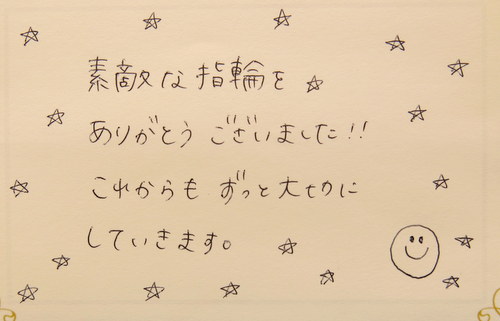 素敵な指輪を
ありがとう ございました!!
これからも ずっと大切に
していきます。